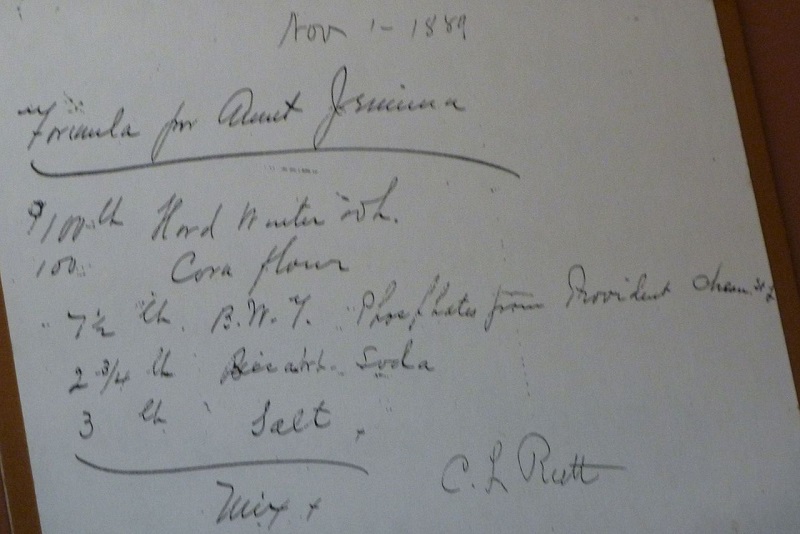 Nov 1 - 1889
Formula for Aunt Jemima
100 lb Hard Winter Wh.
100 Corn flour
7½ lb. B.W.T. Phosphates from Provident Chem.
2 3/4 lb Bicarb. Soda
3 lb Salt.
Mix
C. L. Rutt